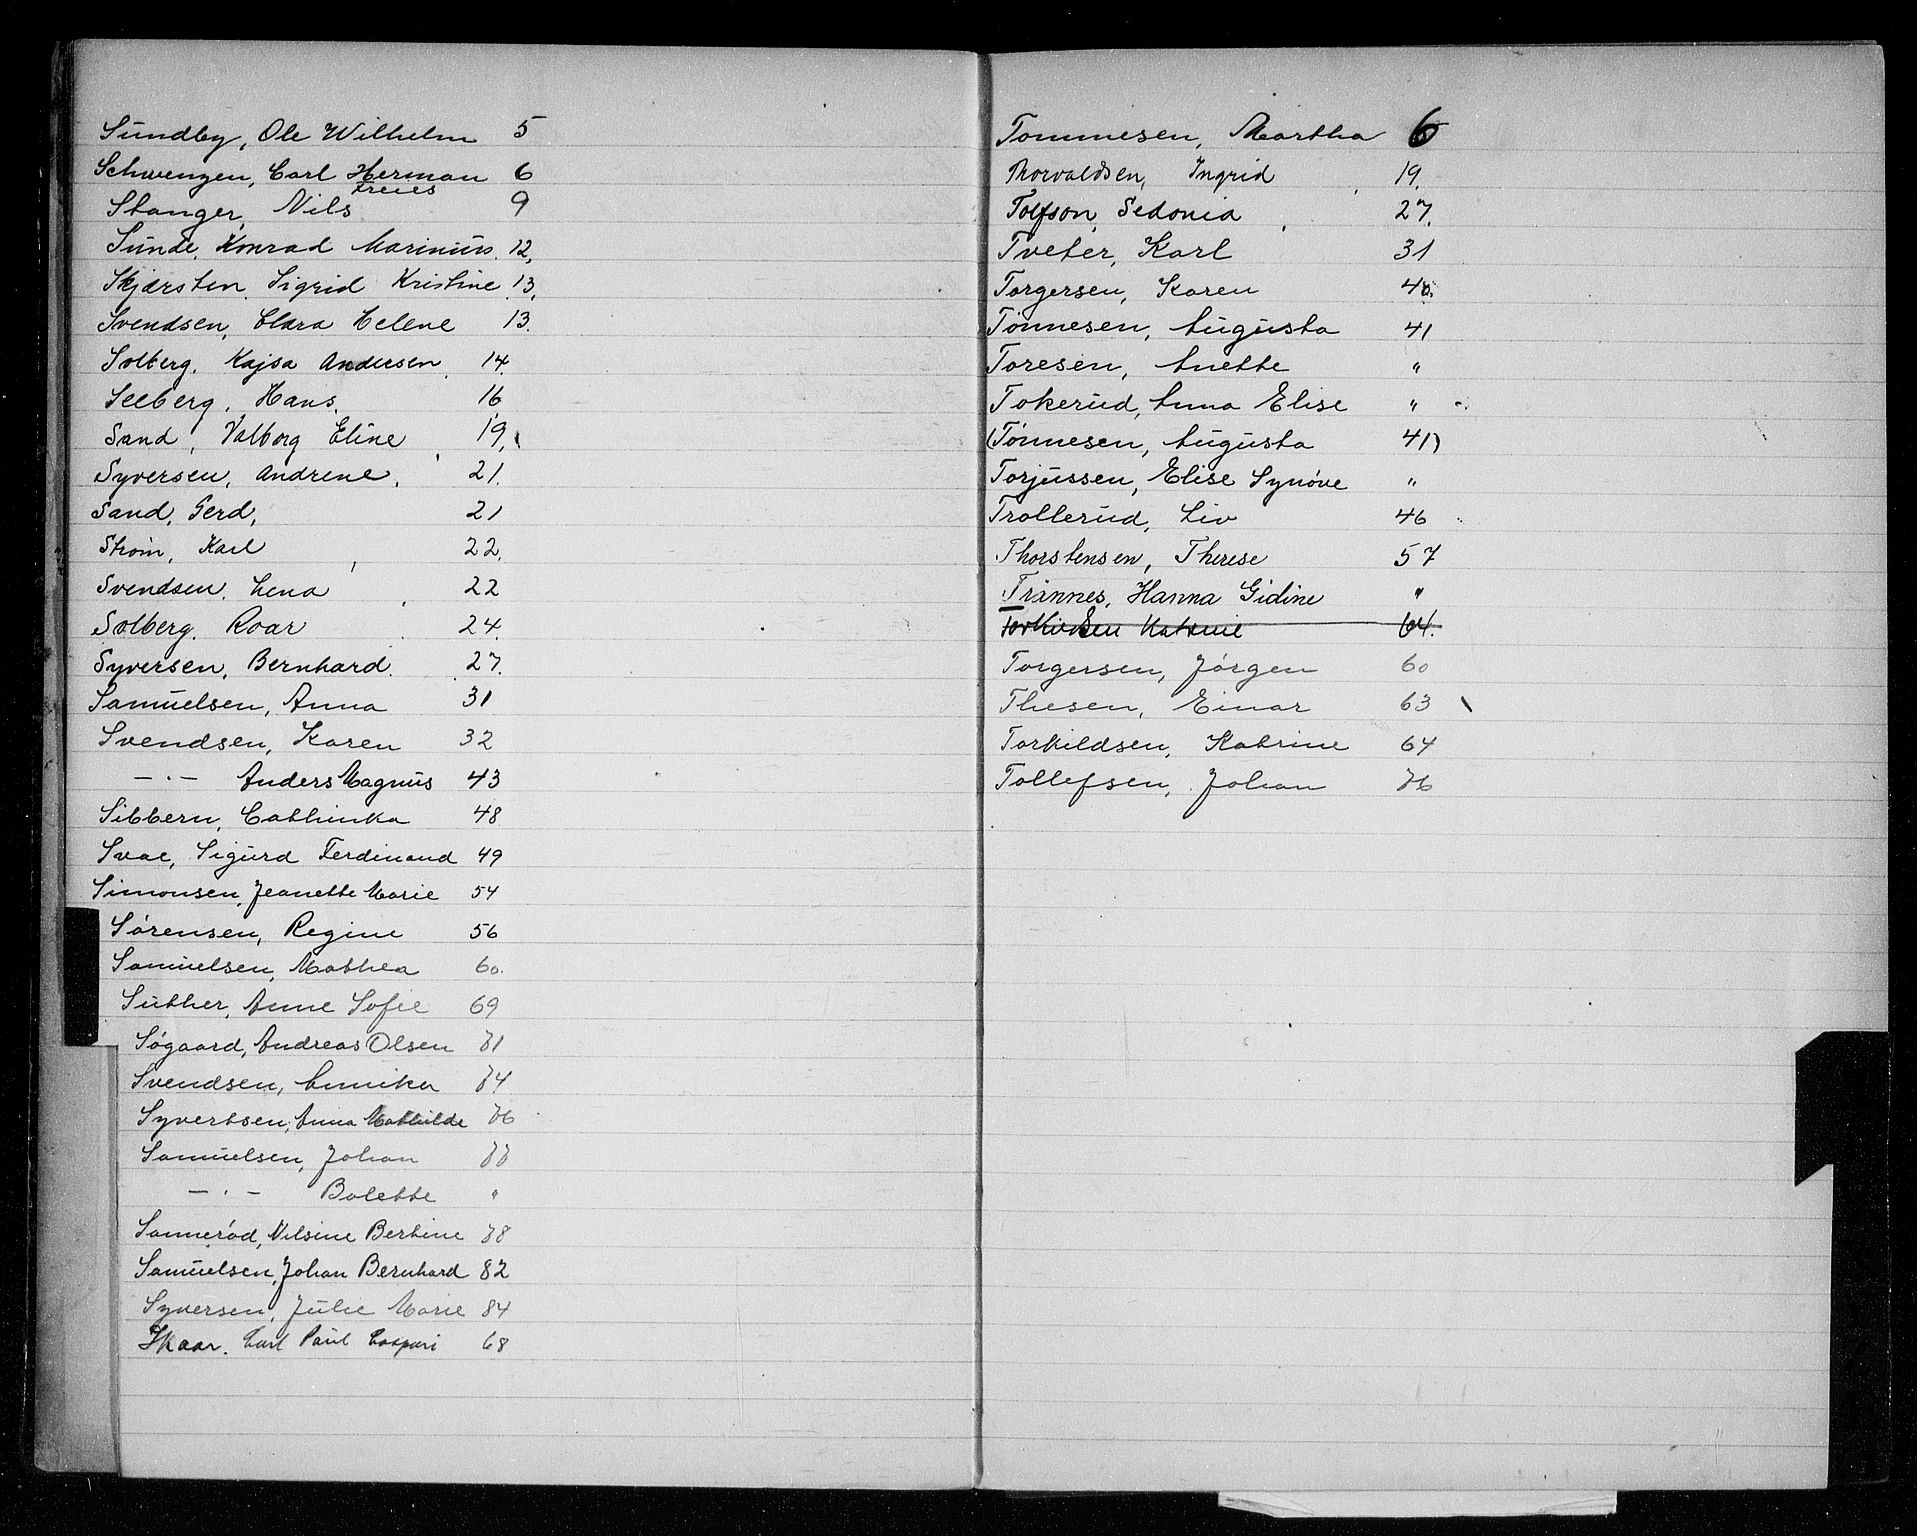 Sundby, Ole Wilhelm 5
Schwenzen, Carl Herman 6
Freies
Stanger, Nils 9
Sunde, Konrad Marinius. 12,
Skjærsten, Sigrid Kristine 13,
Svendsen, Clara Helene 13.
Solberg, Kajsa Andersen, 14.
Seeberg, Hans. 16
Sand, Valborg Eline 19,
Syversen, Andrene, 21.
Sand, Gerd, 21
Strøm, Karl 22.
Svendsen, Lena 22
Solberg, Roar 24.
Syversen, Bernhard. 27.
Samuelsen, Anna 31
Svendsen, Karen 32
—·— Anders Magnus 43
Sibbern, Cathinka 48
Svae, Sigurd Ferdinand 49
Simonsen, Jeanette Marie 54
Sørensen, Regine 56
Samuelsen, Mathea 60.
Suther, Anne Sofie 69
Søgaard, Andreas Olsen 71
Svendsen, Annika 74
Syvertsen, Anna Mathilde 76
Samuelsen, Johan 77
—·— Bolette "
Sannerød, Nilsine Bertine 78
Samuelsen, Johan Bernhard 82
Syversen, Julie Marie 84
Skaar. Carl Paul Caspari 68
Tommesen, Martha 6
Thorvaldsen, Ingrid 19.
Tolfson, Sedonia 27.
Tveter, Karl 31
Torgersen, Karen 40.
Tønnesen, Augusta 41
Toresen, Anette "
Tokerud, Anna Elise "
(Tønnesen, Augusta 41)
Torjussen, Elise Synøve "
Trollerud, Liv 46
Thorstensen, Therese 57
Trånnes, Hanna Gidine "
Torkildsen Katrine 64.
Torgersen, Jørgen 60
Thesen, Einar 63
Torkildsen, Katrine 64
Tollefsen, Johan 76